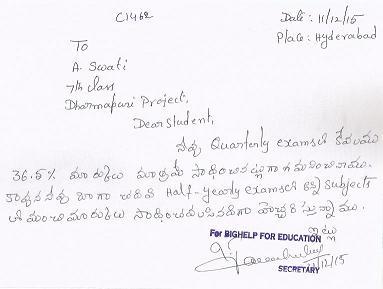 C1462
Date: 11/12/15
Place: Hyderabad
To
A. Swati
7th class
Dharmapuri Project,
Dear student,
నీవు Quarterly examsలో కేవలము
36.5% మార్కులు మాత్రమే సాధించినట్లుగా గమనించినాము.
కావున నీవు బాగా చదివి Half-yearly examsలో అన్ని subjects
లో మంచి మార్కులు సాధించవలసినదిగా హెచ్చరిస్తున్నాము.
For BIGHELP FOR EDUCATION
11/12/15
SECRETARY